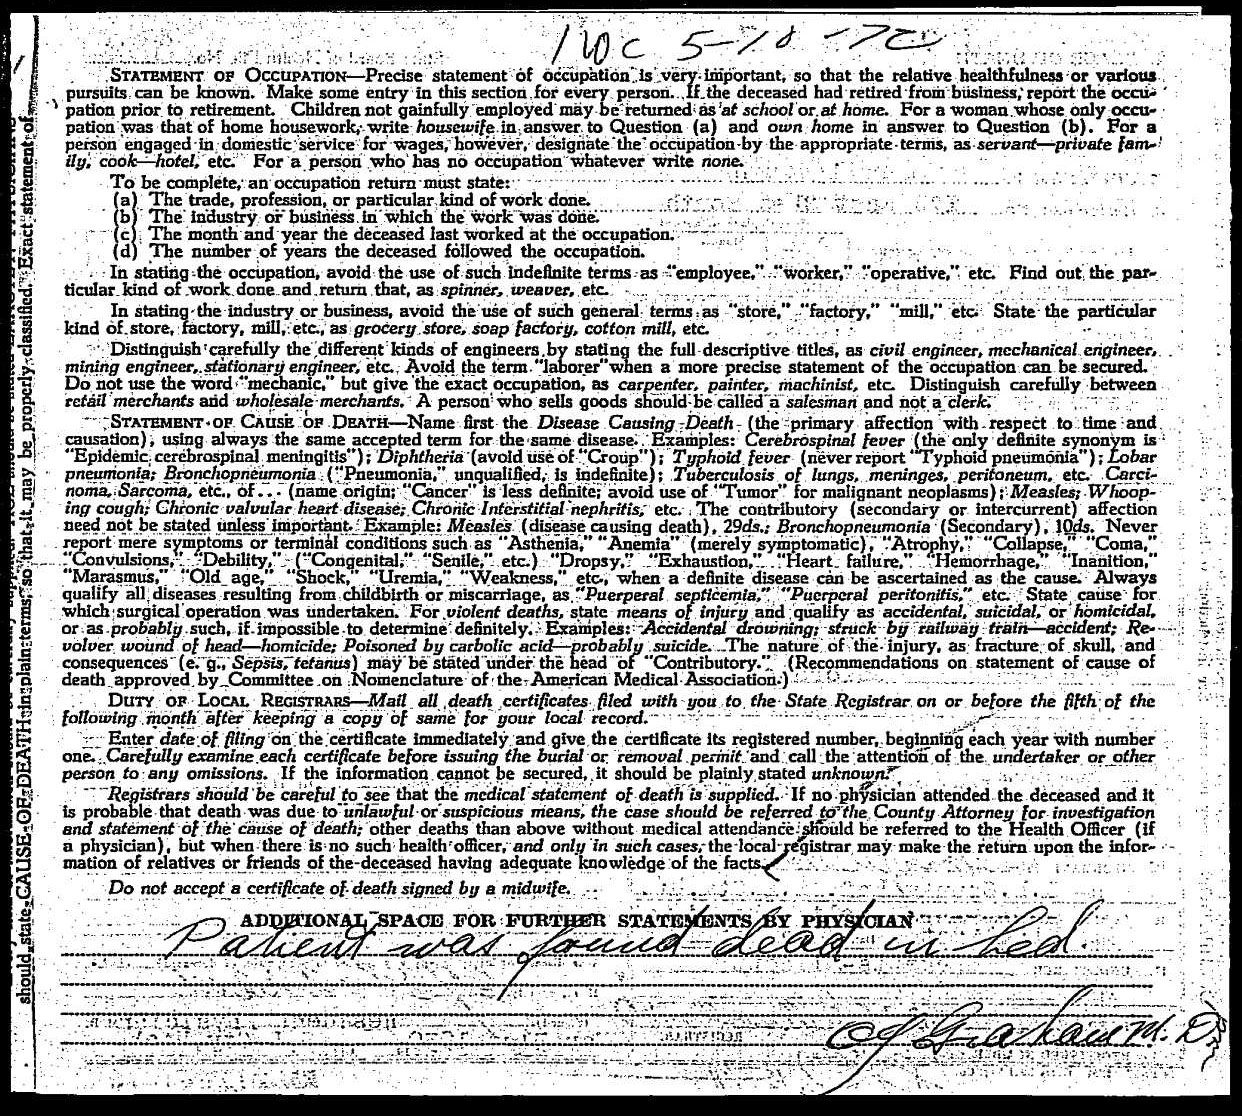 5-18-72
STATEMENT OF OCCUPATION—Precise statement of occupation is very important, so that the relative healthfulness or various
pursuits can be known. Make some entry in this section for every person. If the deceased had retired from business, report the occu-
pation prior to retirement. Children not gainfully employed may be returned as at school or at home. For a woman whose only occu-
pation was that of home housework, write housewife in answer to Question (a) and own home in answer to Question (b). For a
person engaged in domestic service for wages, however, designate the occupation by the appropriate terms, as servant—private fam-
ily, cook—hotel, etc. For a person who has no occupation whatever write none.
To be complete, an occupation return must state:
(a) The trade, profession, or particular kind of work done.
(b) The industry or business in which the work was done.
(c) The month and year the deceased last worked at the occupation.
(d) The number of years the deceased followed the occupation.
In stating the occupation, avoid the use of such indefinite terms as "employee," "worker," "operative," etc. Find out the par-
ticular kind of work done and return that, as spinner, weaver, etc.
In stating the industry or business, avoid the use of such general terms as "store," "factory," "mill," etc. State the particular
kind of store, factory, mill, etc., as grocery store, soap factory, cotton mill, etc.
Distinguish carefully the different kinds of engineers by stating the full descriptive titles, as civil engineer, mechanical engineer,
mining engineer, stationary engineer, etc. Avoid the term "laborer" when a more precise statement of the occupation can be secured.
Do not use the word "mechanic," but give the exact occupation, as carpenter, painter, machinist, etc. Distinguish carefully between
retail merchants and wholesale merchants. A person who sells goods should be called a salesman and not a clerk.
STATEMENT OF CAUSE OF DEATH—Name first the Disease Causing Death (the primary affection with respect to time and
causation), using always the same accepted term for the same disease. Examples: Cerebrospinal fever (the only definite synonym is
"Epidemic cerebrospinal meningitis"); Diphtheria (avoid use of "Croup"); Typhoid fever (never report "Typhoid pneumonia"); Lobar
pneumonia; Bronchopneumonia ("Pneumonia," unqualified, is indefinite); Tuberculosis of lungs, meninges, peritoneum, etc. Carci-
noma, Sarcoma, etc., of... (name origin; "Cancer" is less definite; avoid use of "Tumor" for malignant neoplasms); Measles; Whoop-
ing cough; Chronic valvular heart disease; Chronic Interstitial nephritis, etc. The contributory (secondary or intercurrent) affection
need not be stated unless important. Example: Measles (disease causing death), 29ds.; Bronchopneumonia (Secondary), 10ds. Never
report mere symptoms or terminal conditions such as "Asthenia," "Anemia" (merely symptomatic), "Atrophy," "Collapse," "Coma,"
"Convulsions," "Debility," ("Congenital," "Senile," etc.) "Dropsy," "Exhaustion," "Heart failure," "Hemorrhage," "Inanition,"
"Marasmus," "Old age," "Shock," "Uremia," "Weakness," etc., when a definite disease can be ascertained as the cause. Always
qualify all diseases resulting from childbirth or miscarriage, as "Puerperal septicemia," "Puerperal peritonitis," etc. State cause for
which surgical operation was undertaken. For violent deaths, state means of injury and qualify as accidental, suicidal, or homicidal,
or as probably such, if impossible to determine definitely. Examples: Accidental drowning; struck by railway train—accident; Re-
volver wound of head—homicide; Poisoned by carbolic acid—probably suicide. The nature of the injury, as fracture of skull, and
consequences (e. g., Sepsis, tetanus) may be stated under the head of "Contributory." (Recommendations on statement of cause of
death approved by Committee on Nomenclature of the American Medical Association.)
DUTY OF LOCAL REGISTRARS—Mail all death certificates filed with you to the State Registrar on or before the fifth of the
following month after keeping a copy of same for your local record.
Enter date of filing on the certificate immediately and give the certificate its registered number, beginning each year with number
one. Carefully examine each certificate before issuing the burial or removal permit and call the attention of the undertaker or other
person to any omissions. If the information cannot be secured, it should be plainly stated unknown.
Registrars should be careful to see that the medical statement of death is supplied. If no physician attended the deceased and it
is probable that death was due to unlawful or suspicious means, the case should be referred to the County Attorney for investigation
and statement of the cause of death; other deaths than above without medical attendance should be referred to the Health Officer (if
a physician), but when there is no such health officer, and only in such cases, the local registrar may make the return upon the infor-
mation of relatives or friends of the deceased having adequate knowledge of the facts.
Do not accept a certificate of death signed by a midwife.
ADDITIONAL SPACE FOR FURTHER STATEMENTS BY PHYSICIAN
Patient was found dead in bed.
Graham M. D.
should state CAUSE OF DEATH in plain terms, so that it may be properly classified. Exact statement of